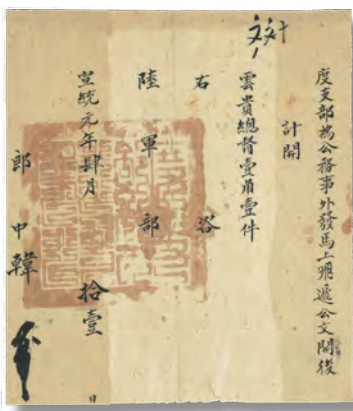 度支部為公務事外發馬上飛遞公文開後
計開
雲貴總督壹角壹件
右咨
陸軍部
宣統元年肆月拾壹日
郎中韓